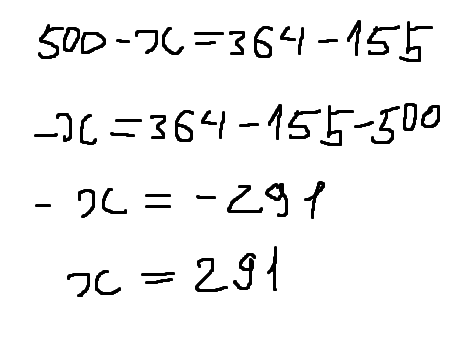 500-x=364-155
-x=364-155-500
- x = -291
x = 291